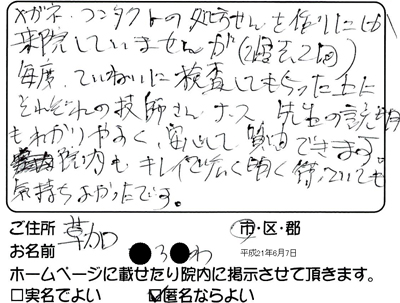 メガネ、コンタクトの処方せんを作りにしか
来院していませんが(過去2回)
毎度、ていねいに検査してもらった上に
それぞれの技師さん、ナース、先生の説明
もわかりやすく、安心して質問できます。
院内もキレイで広く明るく待っていても
気持ちよかったです。
ご住所 草加 市・区・郡
お名前 ●ろ●わ 平成21年6月7日
ホームページに載せたり院内に掲示させて頂きます。
□実名でよい ☑匿名ならよい